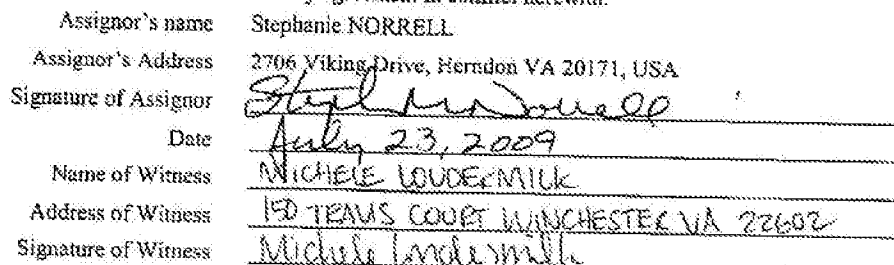 in conflict herewith.
Assignor's name Stephanie NORRELL
Assignor's Address 2706 Viking Drive, Herndon VA 20171, USA
Signature of Assignor Steph M Norrell
Date July 23, 2009
Name of Witness MICHELE LOUDERMILK
Address of Witness 150 TRAVIS COURT WINCHESTER VA 22602
Signature of Witness Michele Loudermilk